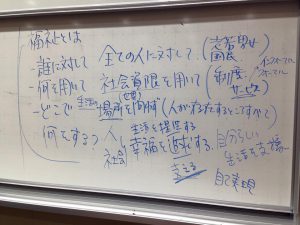 福祉とは
・誰に対して 全ての人に対して。(老若男女 国民
・何を用いて 社会資源を用いて (制度 サービス インフォーマル フォーマル
・どこで 生活の 場所を問わず (人がいるところすべて)
・何をする 人 生活を提供する
社会 幸福を追求する。自分らしい生活を支援
支える
自己実現